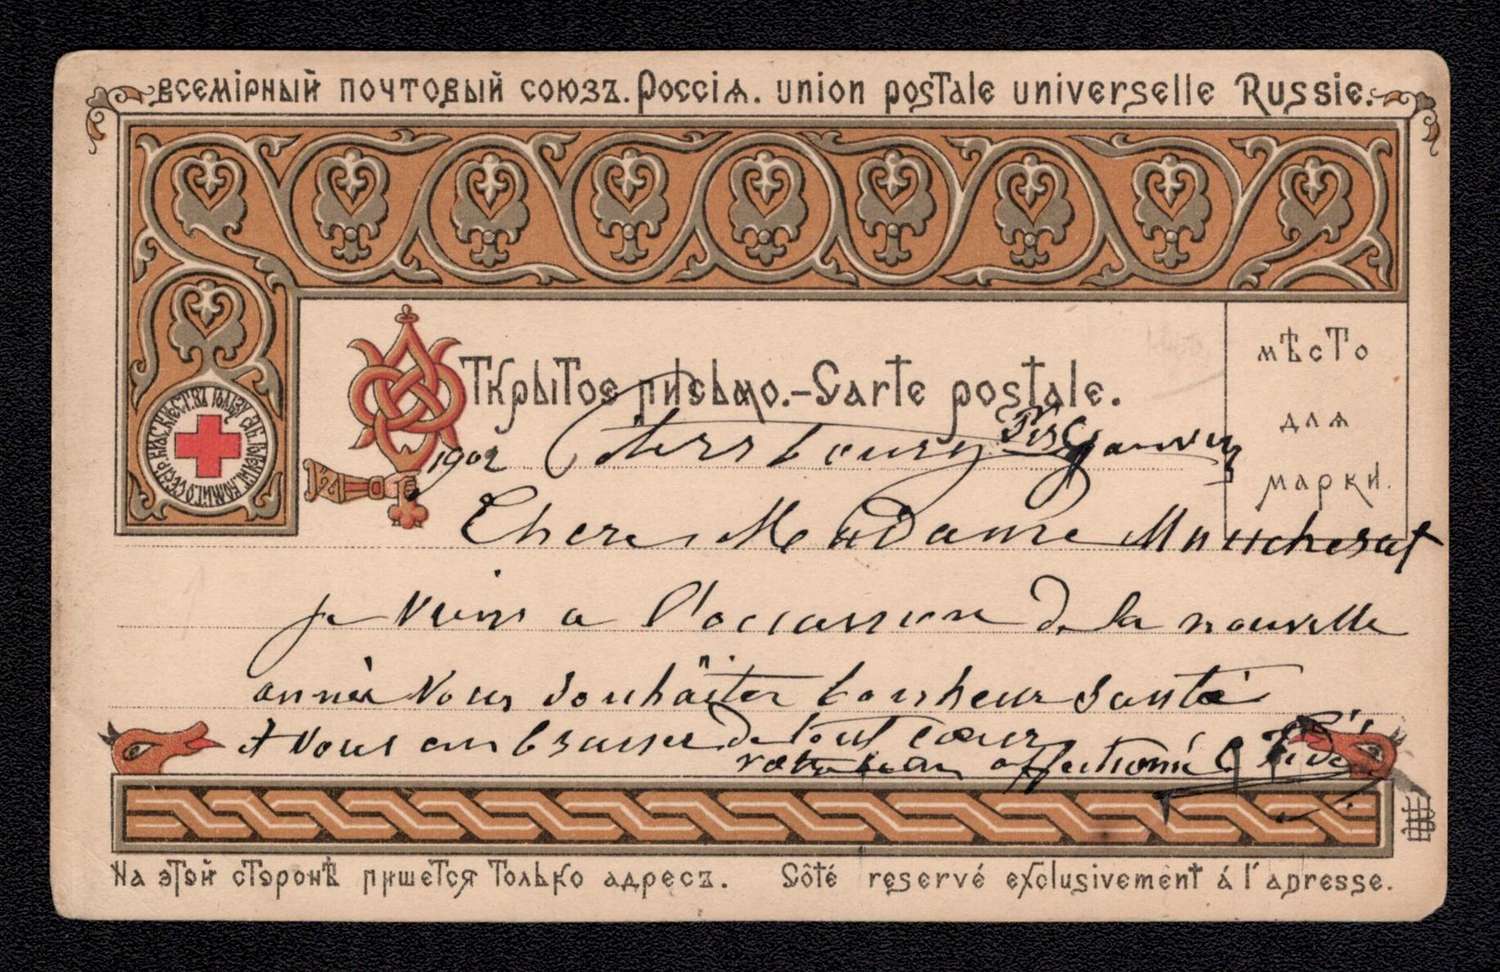 Всемірный почтовый союзъ. Россія. Union postale universelle Russie.
Открытое письмо.-Carte postale.
мѣсто
для
марки.
1902 Petersbourg Janvier
Chere Madame
je viens a l'occassion de la nouvelle
année vous souhaiter bonheur santé
et vous embrasser de tout cœur
votre bien affectionné C.
На этой сторонѣ пишется только адресъ. Côté reservé exclusivement á l'adresse.